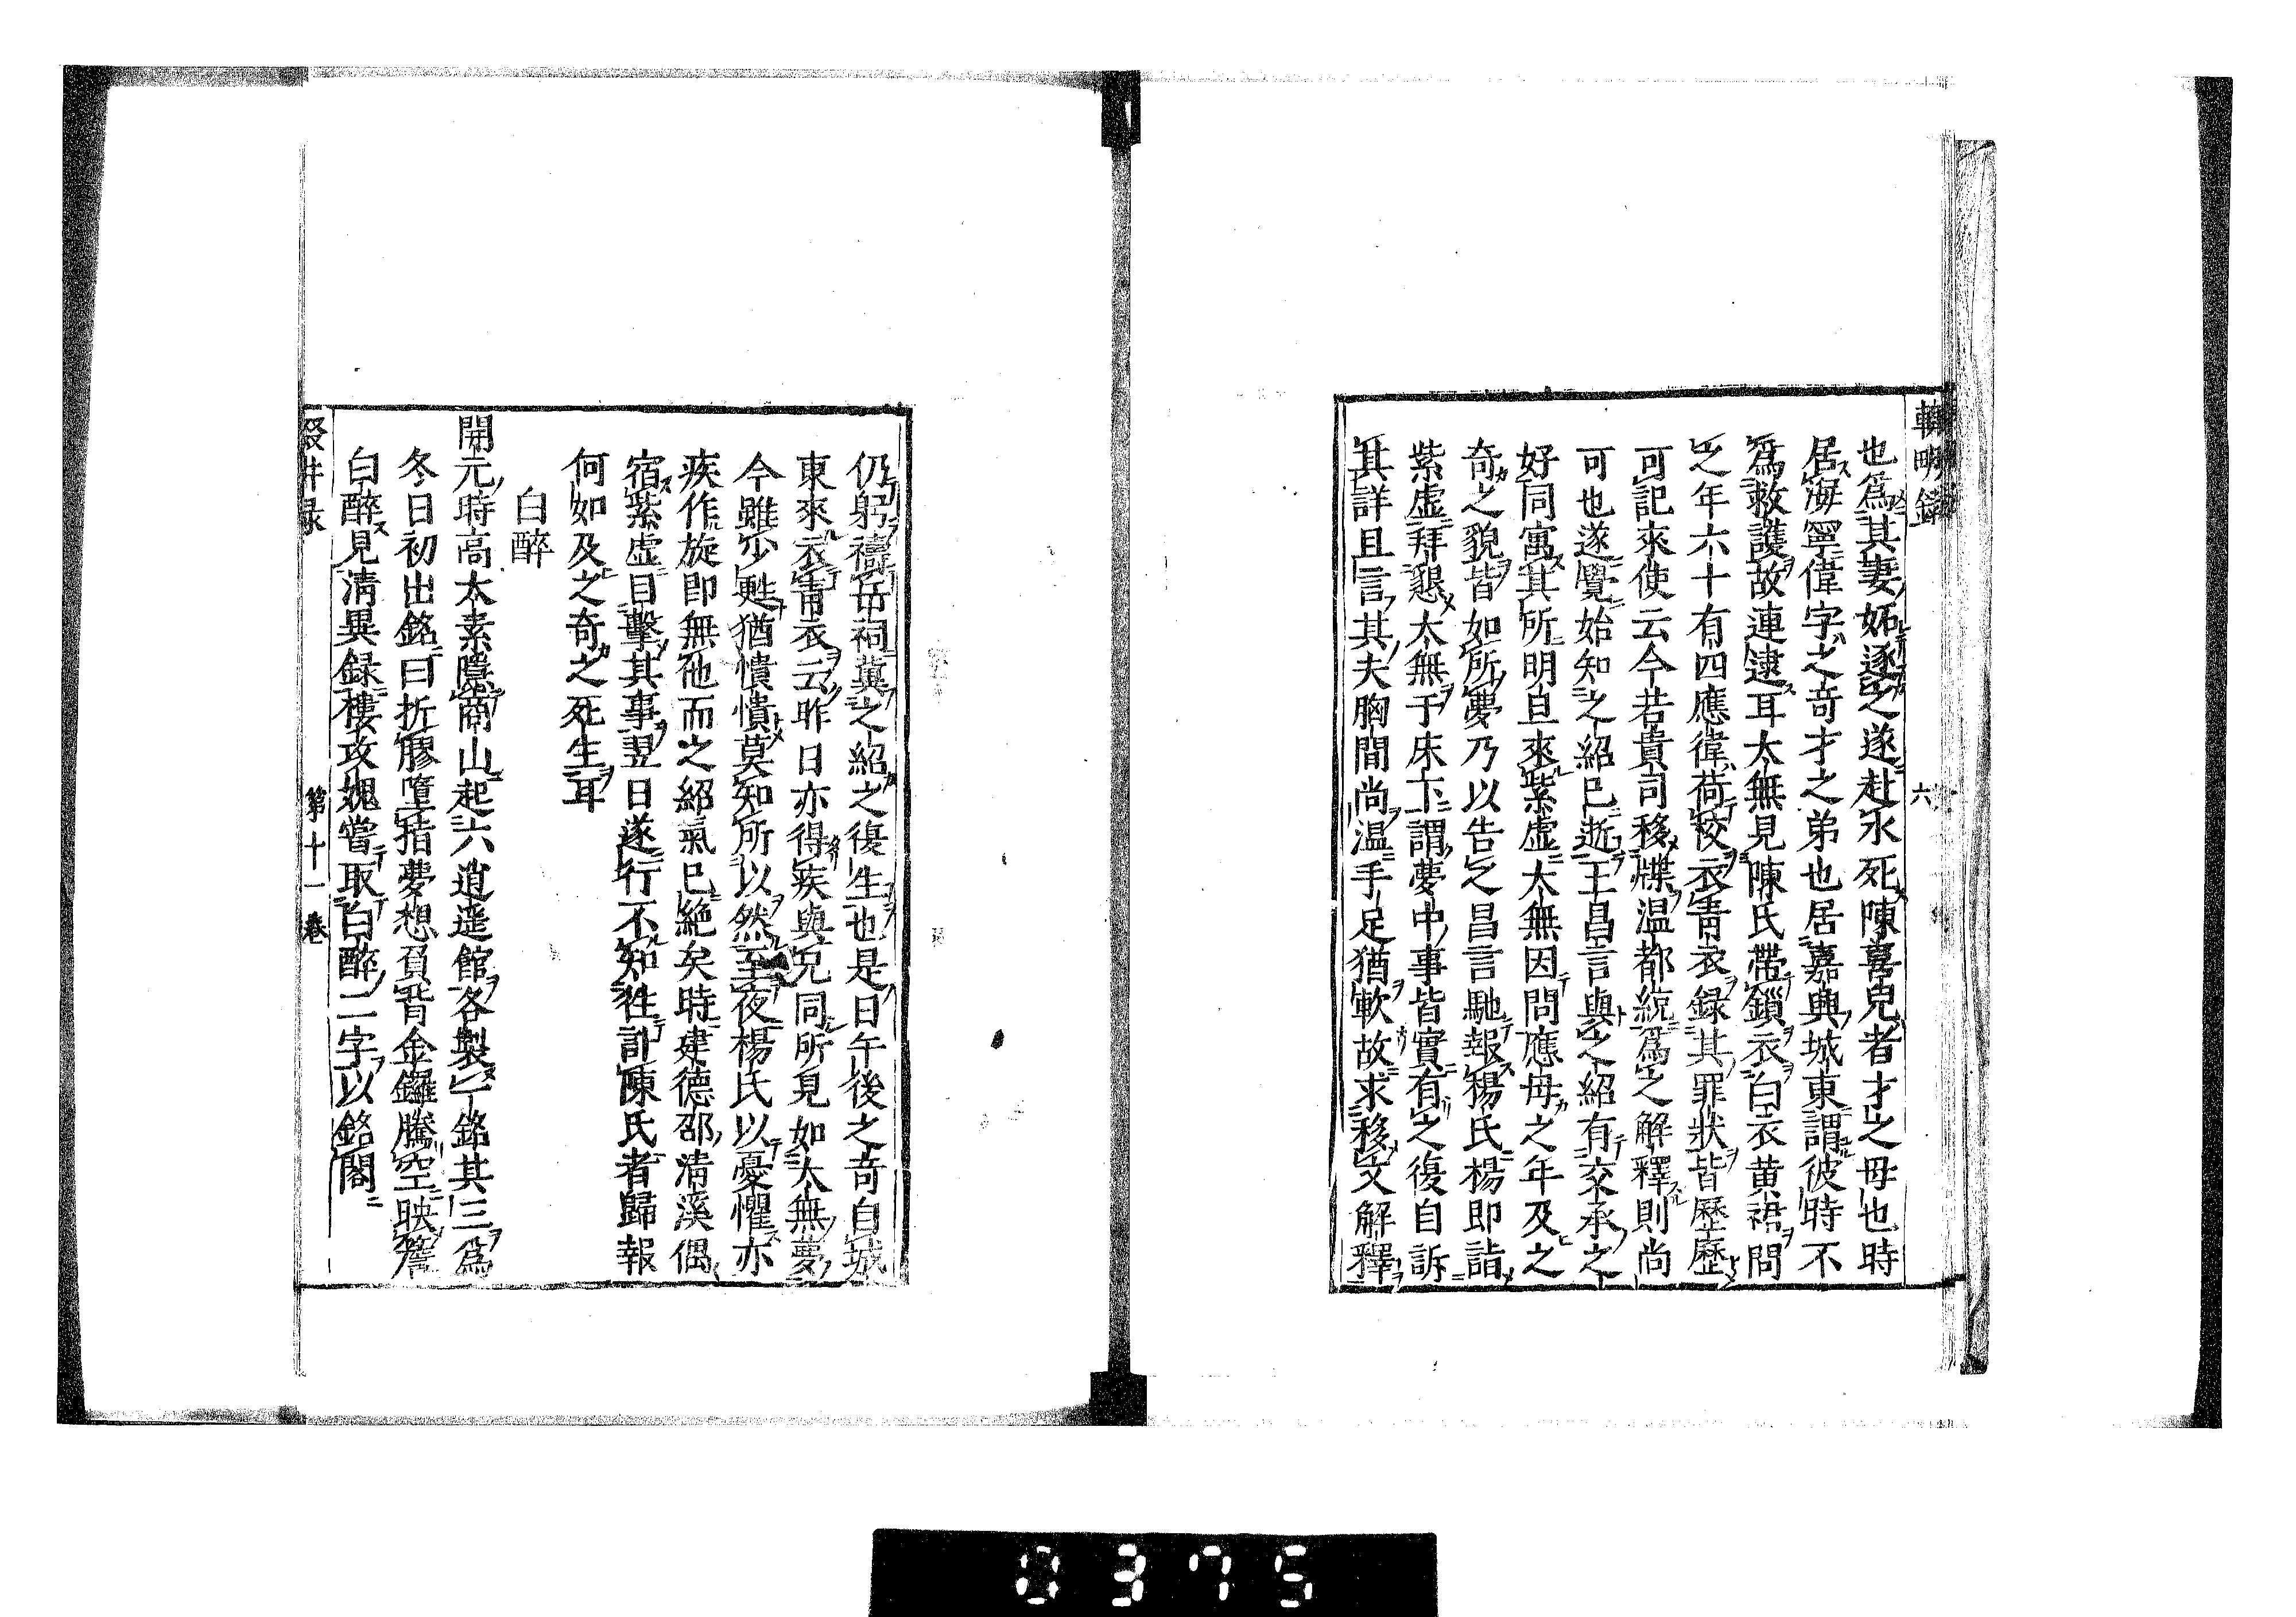 輟畊錄
六
也爲其妻妬逐之遂赴水死陳喜兒者才之母也時
居海寧偉字之奇才之弟也居嘉興城東謂彼時不
爲救護故連逮耳太無見陳氏帶鎻衣白衣黄裙問
之年六十有四應偉荷校衣青衣録其罪狀皆歷歷
可記來使云今若貴司移牒温都統爲之解釋則尚
可也遂覺始知之紹已逝王昌言與之紹有交承之
好同寓其所明旦來紫虛太無因問應母之年及之
奇之貌皆如所夢乃以告之昌言馳報楊氏楊即詣
紫虛拜懇太無于床下謂夢中事皆實有之復自訴
其詳且言其夫胸間尚温手足猶軟故求移文解釋
仍躬禱岳祠冀之紹之復生也是日午後之奇自城
東來衣青衣云昨日亦得疾與兄同所見如太無夢
今雖少甦猶憒憒莫知所以然至夜楊氏以憂懼亦
疾作旋即無他而之紹氣已絶矣時建德邵清溪偶
宿紫虛目擊其事翌日遂行不知徃訃陳氏者歸報
何如及之奇之死生耳
白醉
開元時高太素隱商山起六逍遥館各製一銘其三爲
冬日初出銘曰折膠墮指夢想負背金鑼騰空映簷
白醉見清異録樓攻媿嘗取白醉二字以銘閣
第十一卷
0375